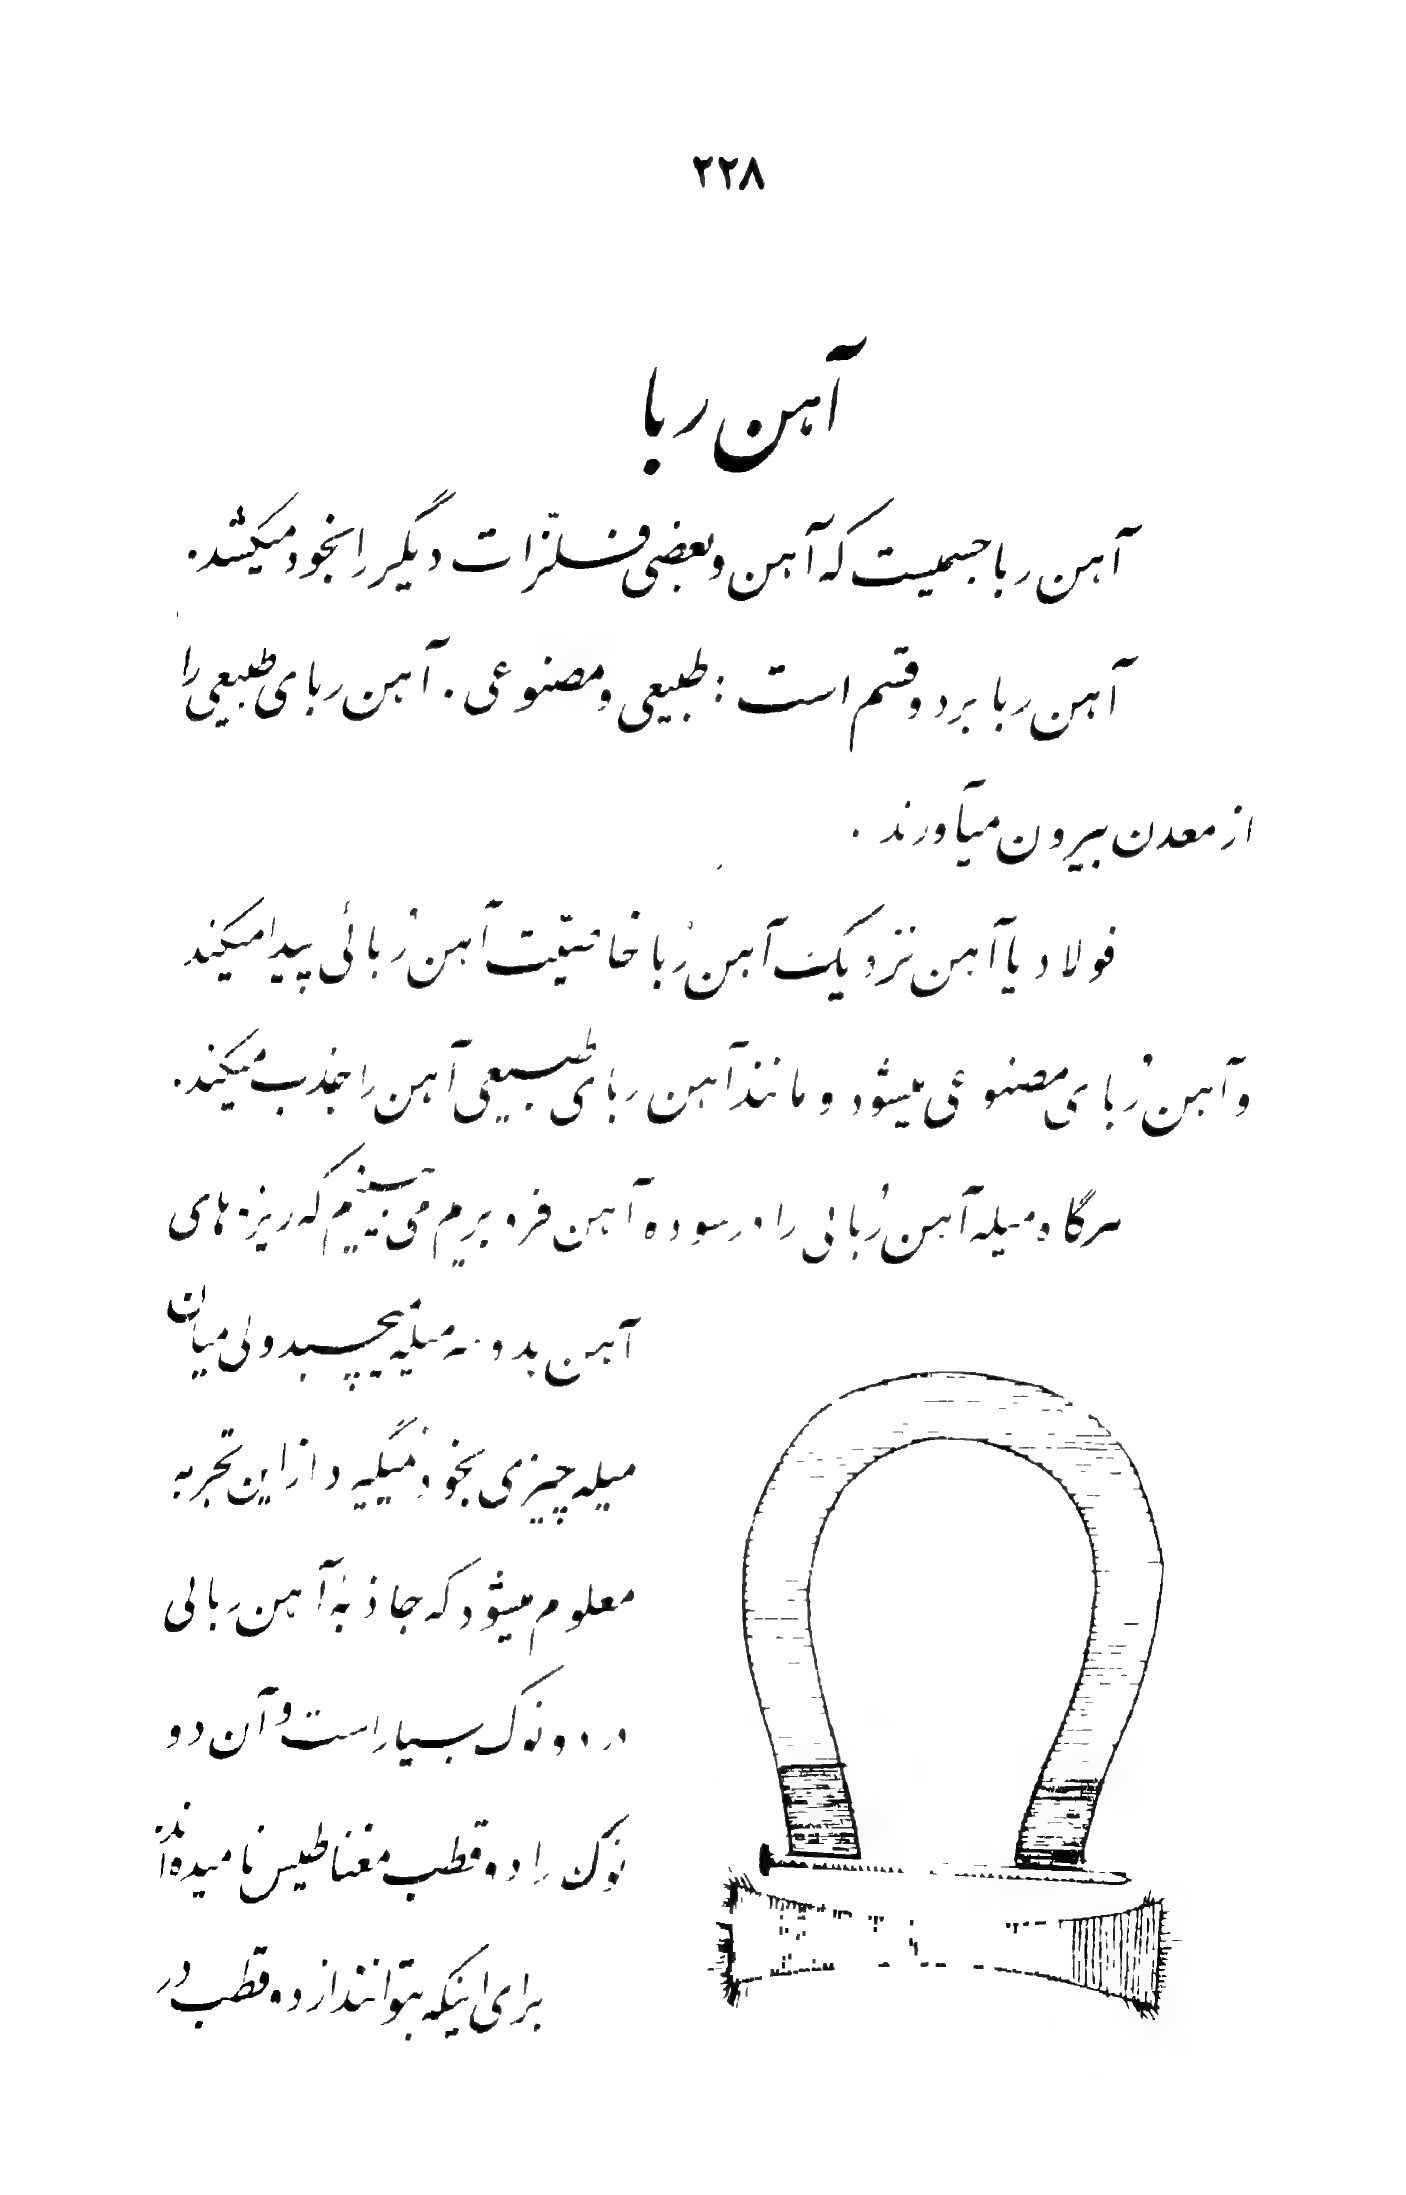 ۲۲۸
آهن ربا
آهن ربا جسمیست که آهن و بعضی فلزّات دیگر را بخود میکشد.
آهن ربا بر دو قسم است : طبیعی و مصنوعی . آهن ربای طبیعی را
از معدن بیرون میآورند .
فولاد یا آهن نزدیک آهن رُبا خاصیّت آهن رُبائی پیدا میکند
و آهن رُبای مصنوعی میشود و مانند آهن ربای طبیعی آهن را جذب میکند.
هرگاه میله آهن رُبائی را در سوده آهن فرو بریم می بینیم که ریزه های
آهن بدو سر میله میچسبد ولی میان
میله چیزی بخود نمیگیرد از این تجربه
معلوم میشود که جاذبهٔ آهن ربائی
در دو نوک بسیار است و آن دو
نوک را دو قطب مغناطیس نامیده اند
برای اینکه بتوانند از دو قطب در